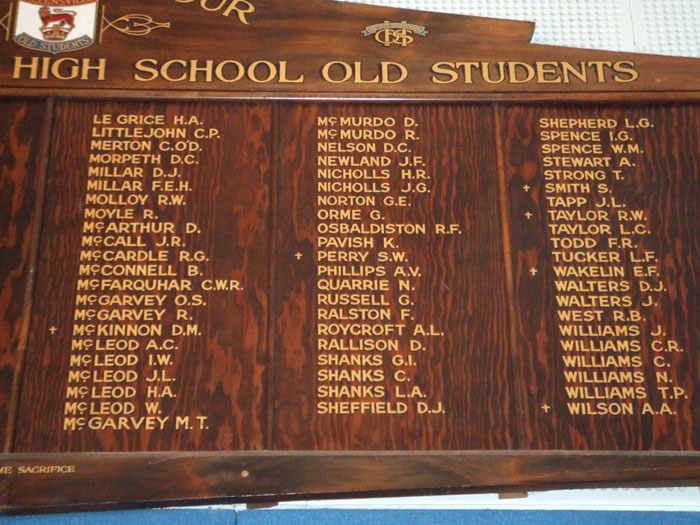 OUR
OLD STUDENTS
HIGH SCHOOL OLD STUDENTS
LE GRICE H.A.
LITTLEJOHN C.P.
MERTON C.O'D.
MORPETH D.C.
MILLAR D.J.
MILLAR F.E.H.
MOLLOY R.W.
MOYLE R.
McARTHUR D.
McCALL J.R.
McCARDLE R.G.
McCONNELL B.
McFARQUHAR C.W.R.
McGARVEY O.S.
McGARVEY R.
✝ McKINNON D.M.
McLEOD A.C.
McLEOD I.W.
McLEOD J.L.
McLEOD H.A.
McLEOD W.
McGARVEY M.T.
McMURDO D.
McMURDO R.
NELSON D.C.
NEWLAND J.F.
NICHOLLS H.R.
NICHOLLS J.G.
NORTON G.E.
ORME G.
OSBALDISTON R.F.
PAVISH K.
✝ PERRY S.W.
PHILLIPS A.V.
QUARRIE N.
RUSSELL G.
RALSTON F.
ROYCROFT A.L.
RALLISON D.
SHANKS G.I.
SHANKS C.
SHANKS L.A.
SHEFFIELD D.J.
SHEPHERD L.G.
SPENCE I.G.
SPENCE W.M.
STEWART A.
STRONG T.
✝ SMITH S.
TAPP J.L.
✝ TAYLOR R.W.
TAYLOR L.C.
TODD F.R.
TUCKER L.F.
✝ WAKELIN E.F.
WALTERS D.J.
WALTERS J.
WEST R.B.
WILLIAMS J.
WILLIAMS C.R.
WILLIAMS C.
WILLIAMS N.
WILLIAMS T.P.
✝ WILSON A.A.
ME SACRIFICE